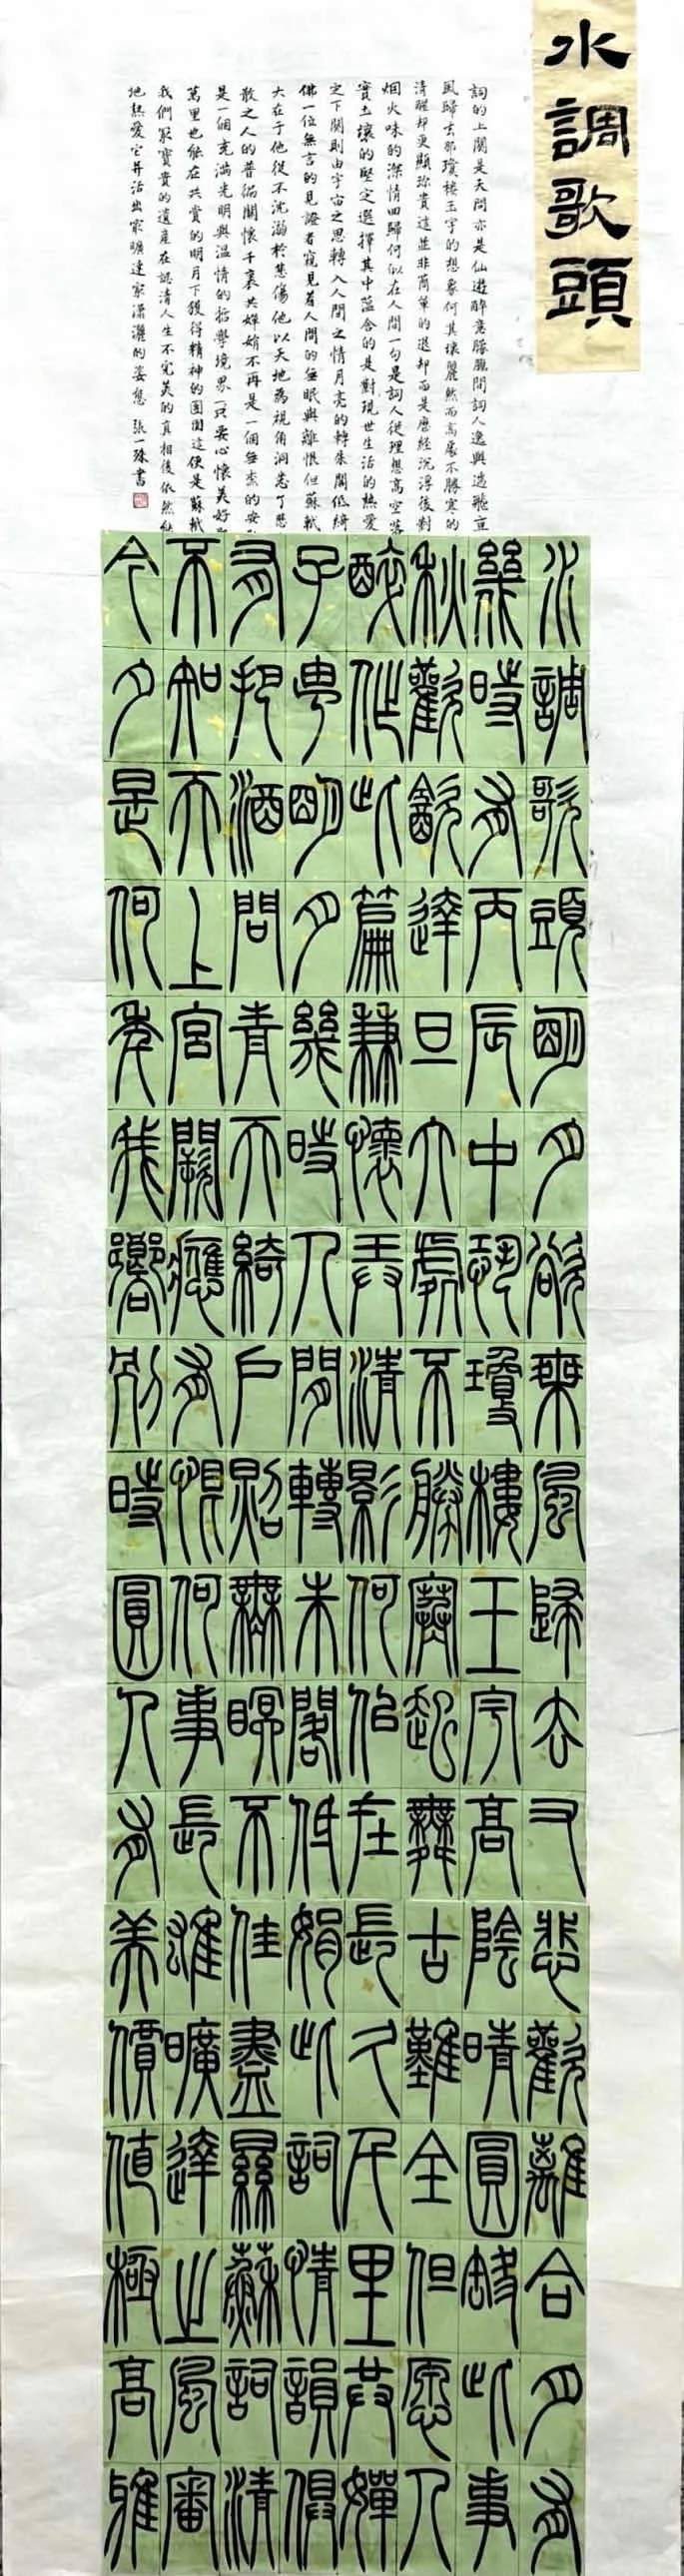 水調歌頭
詞的上闋是天問亦是仙遊醉意朦朧間詞人逸興遄飛直
風歸去那瓊樓玉宇的想象何其壞麗然而高處不勝寒的
清醒卻更顯珍貴這並非简單的退却而是歷經沉浮後對
烟火味的深情回歸何似在人間一句是詞人從理想高空落
實土壤的堅定選擇其中蕴含的是對現世生活的热愛
定下闋則由宇宙之思轉入人間之情月亮的轉朱閣低綺
佛一位無言的見證者窺見着人間的無眠與離恨但蘇軾
大在于他從不沈溺於悲傷他以天地為視角洞悉了悲
散之人的普徧關懷千裏共嬋娟不再是一個無奈的安
是一個充滿光明與温情的哲學境界只要心懷美好
萬里也能在共賞的明月下獲得精神的團圓這便是蘇軾
我們最寶貴的遺產在認清人生不完美的真相後依然
地熱愛它并活出最曠達最瀟灑的姿態 張一殊書
水調歌頭明月欲乘風歸去又悲歡離合月有
幾時有丙辰中恐瓊樓玉宇高陰晴圓缺此事
秋歡飲達旦大處不勝寒起舞古難全但愿人
醉作此篇兼懷弄清影何似在長久千里共嬋
子由明月幾時人間轉朱閣低娟此詞情韻俱
有把酒問青天綺戶照無眠不佳盡顯蘇詞清
不知天上宮闕應有恨何事長雄曠達之風審
今夕是何年我嚮別時圓人有美價值極高雅